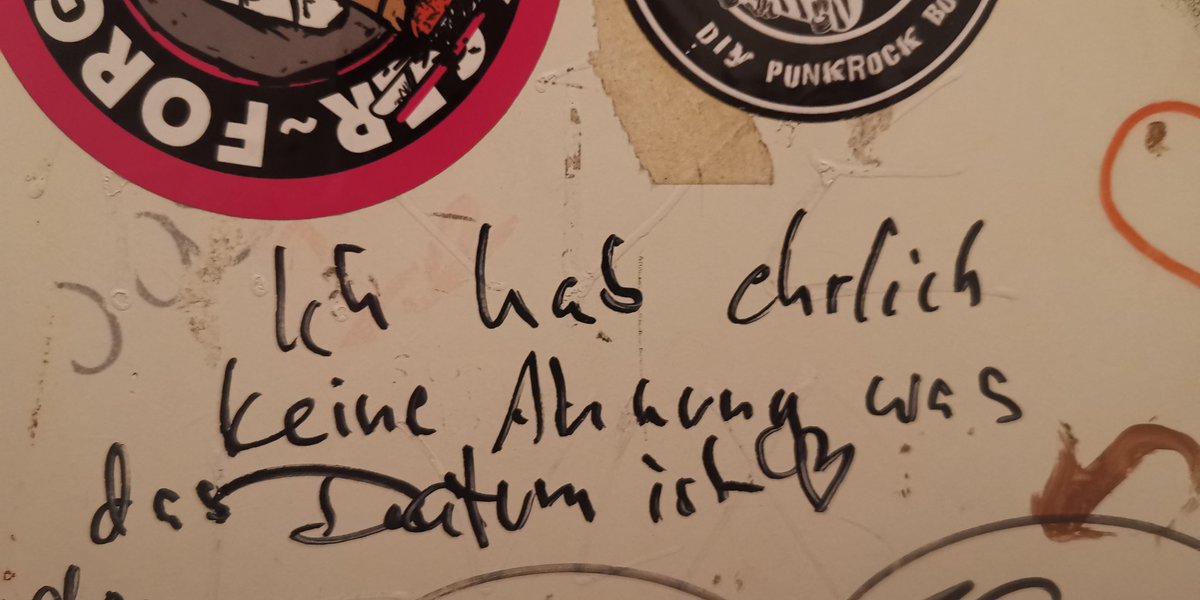 DIY PUNKROCK BO
R~FORC
Ich hab ehrlich
keine Ahnung was
das Datum ist